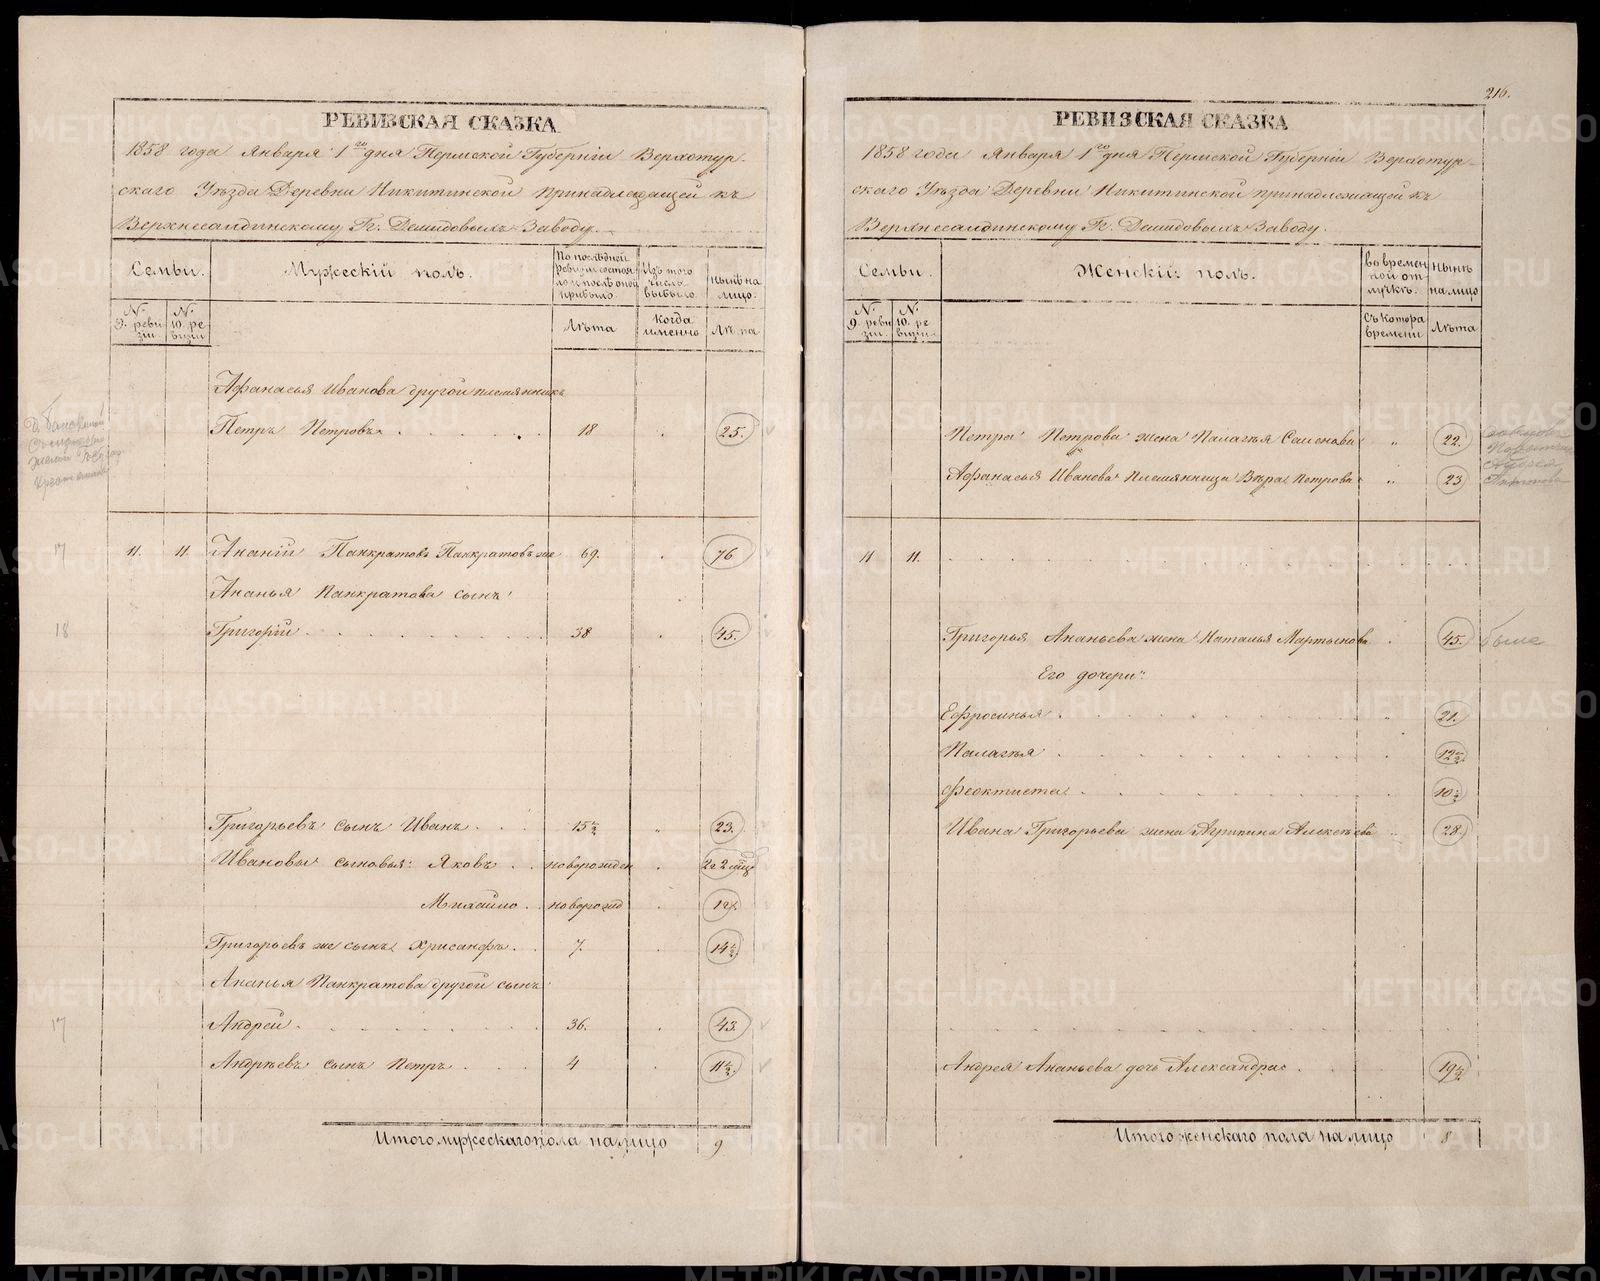 РЕВИЗСКАЯ СКАЗКА
1858 года Января 1го дня Пермской Губерніи Верхотур-
скаго Уѣзда Деревни Никитинской принадлежащей къ
Верхнесалдинскому Гг. Демидовыхъ Заводу.
Семьи.
Мужескій полъ.
По послѣдней ревизіи состояло и послѣ оной прибыло.
Изъ того числа выбыло.
Нынѣ на лицо.
№ 9. ревизіи.
№ 10. ревизіи
Лѣта
Когда именно
Лѣта
Афанасья Иванова другой племянникъ
Петръ Петровъ 18 25.
17 11. 11. Ананій Панкратовъ Панкратовъ же 69. 76
Ананья Панкратова сынъ
18 Григорій 38 45.
Григорьевъ сынъ Иванъ 15½ 23.
Ивановы сыновья: Яковъ новорожден 2г 2 мѣц
Михайло новорожд 1г.
Григорьевъ же сынъ Хрисанфъ 7. 14½
Ананья Панкратова другой сынъ
17 Андрей 36. 43.
Андрѣевъ сынъ Петръ 4 11½
Итого мужескаго пола на лицо 9
216.
РЕВИЗСКАЯ СКАЗКА
1858 года Января 1го дня Пермской Губерніи Верхотур-
скаго Уѣзда Деревни Никитинской принадлежащей къ
Верхнесалдинскому Гг. Демидовыхъ Заводу.
Семьи.
Женскій полъ.
Во временной отлучкѣ.
Нынѣ на лицо
№ 9. ревизіи.
№ 10. ревизіи.
Съ котора времени
Лѣта
Петра Петрова жена Палагья Семенова " 22.
Афанасья Иванова племянница Вѣра Петрова " 23
11 11.
Григорья Ананьева жена Наталья Мартынова 45.
Его дочери:
Ефросинья 21.
Палагья 12½
Феоктиста 10½
Ивана Григорьева жена Агрипина Алексѣева 28.
Андрея Ананьева дочь Александра 19½
Итого женскаго пола на лицо 8
METRIKI.GASO-URAL.RU